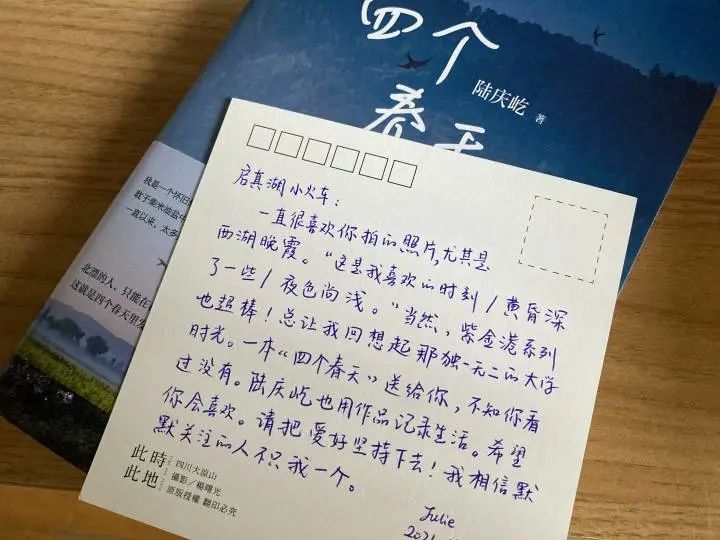 四个
春天
陆庆屹 著
我是一个怀旧
敢于柴米油盐
一直以来，太多
北漂的人，只能在
这就是四个春天里
启真湖小火车：
一直很喜欢你拍的照片，尤其是
西湖晚霞。“这是我喜欢的时刻/黄昏深
了一些/夜色尚浅。”当然，紫金港系列
也超棒！总让我回想起那独一无二的大学
时光。一本“四个春天”送给你，不知你看
过没有。陆庆屹也用作品记录生活。希望
你会喜欢。请把爱好坚持下去！我相信默
默关注的人不只我一个。
Julie
此時
此地
四川大凉山
攝影／楊曙光
原版授權 翻印必究